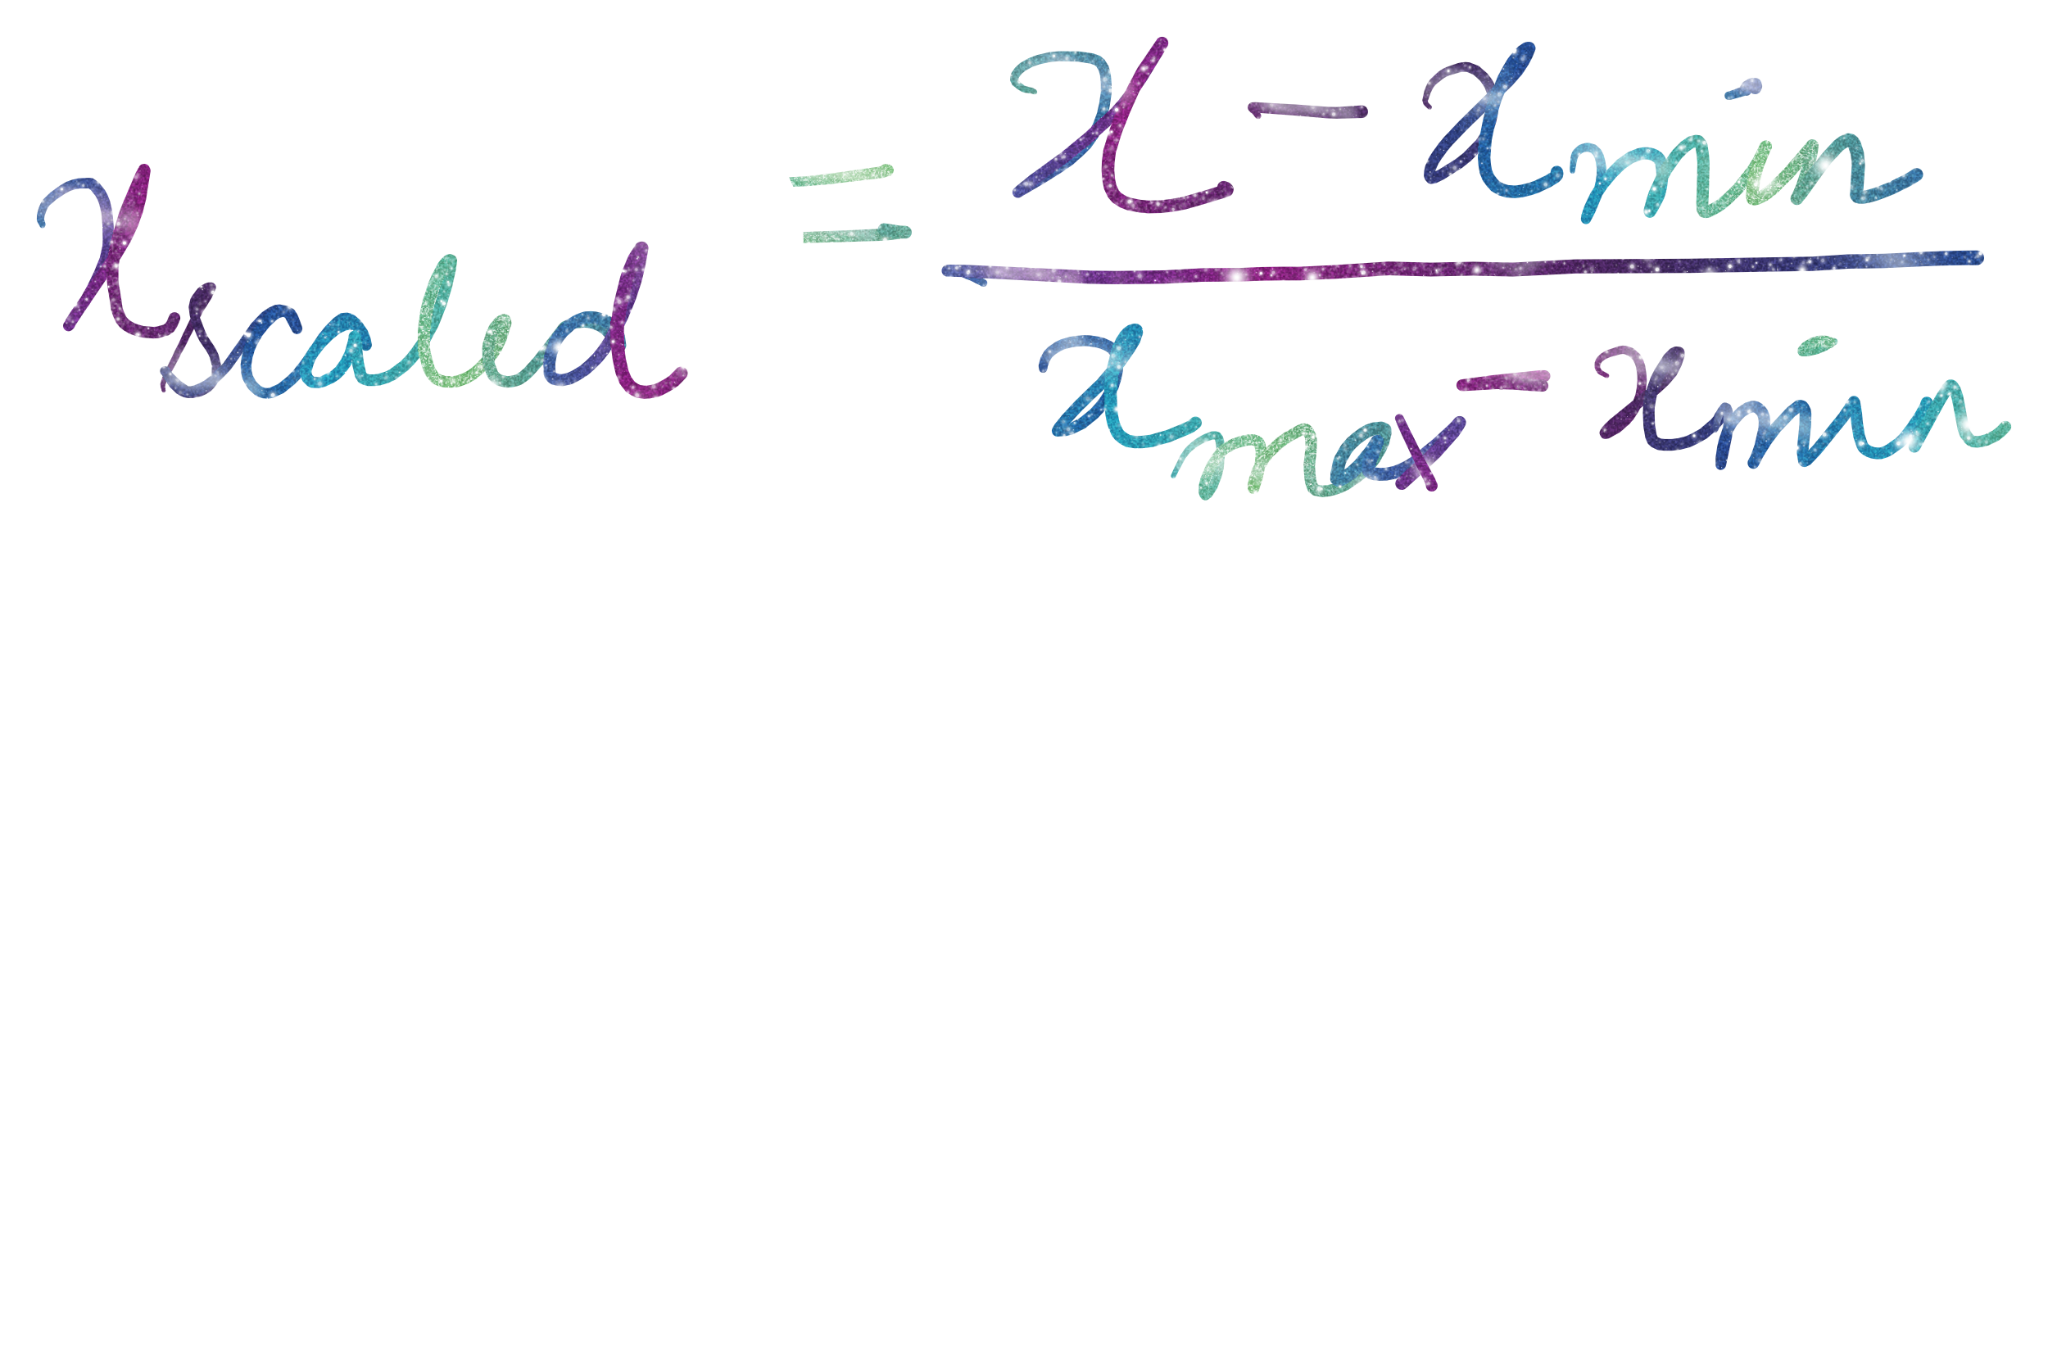 x_scaled = \frac{x - x_min}{x_max - x_min}